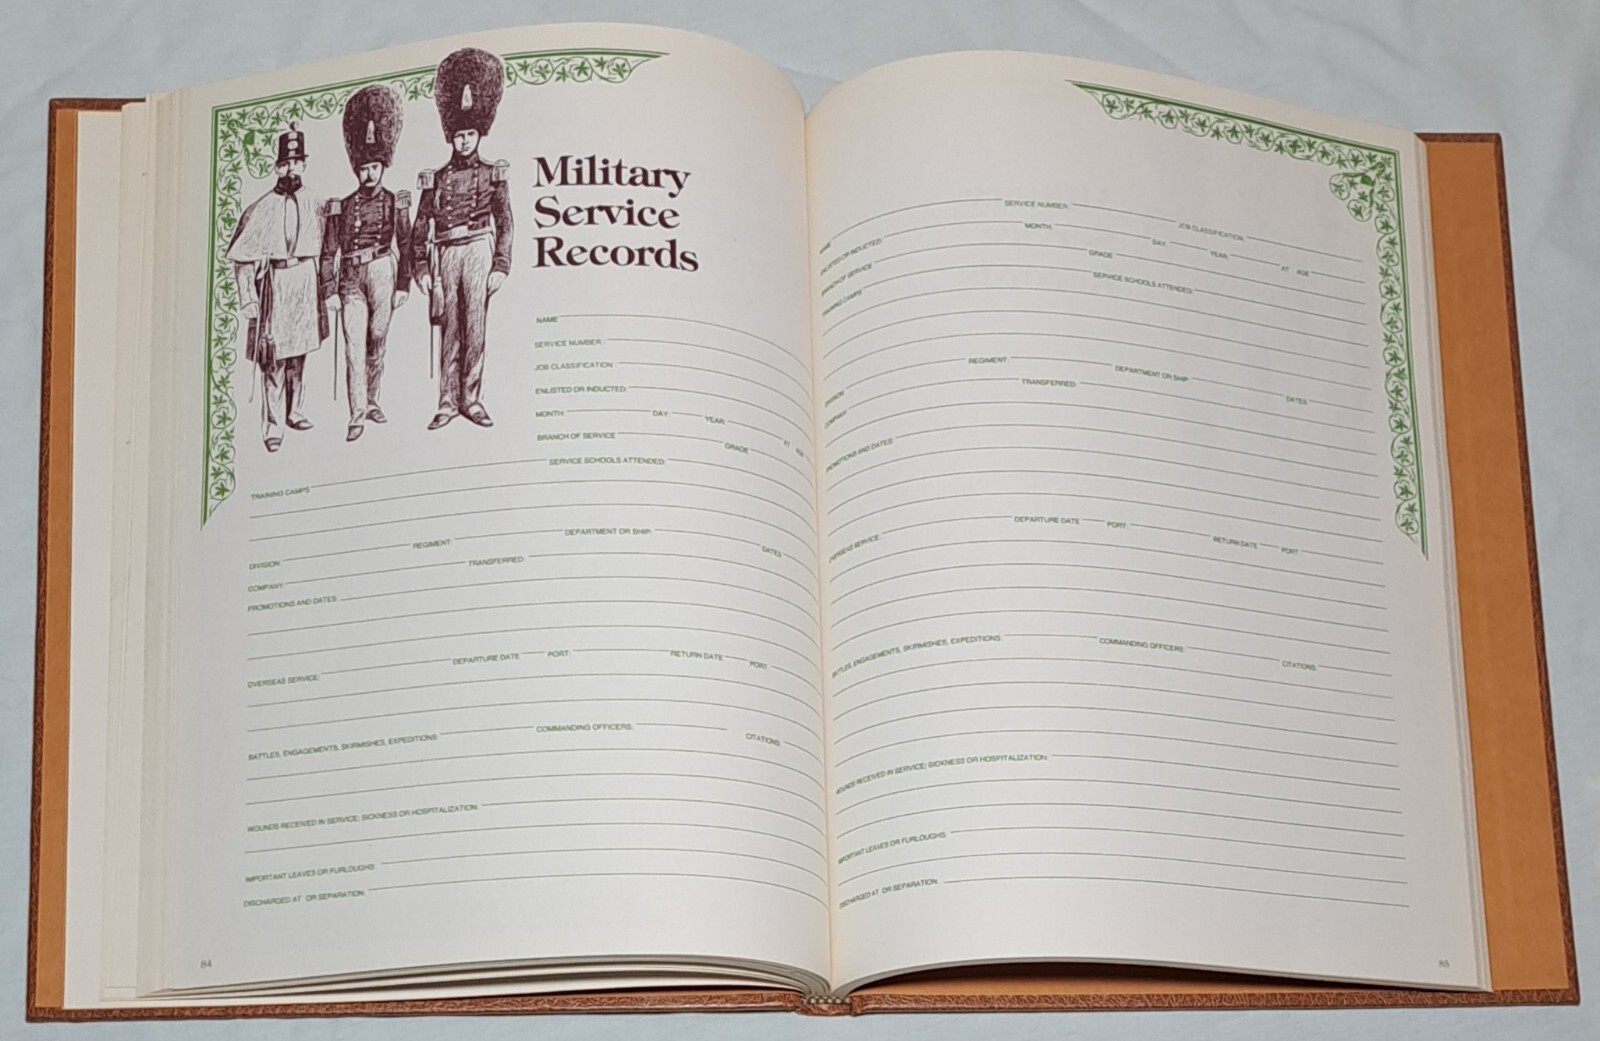 Military
Service
Records
NAME
SERVICE NUMBER:
JOB CLASSIFICATION:
ENLISTED OR INDUCTED:
MONTH: DAY: YEAR: AT AGE
BRANCH OF SERVICE GRADE
TRAINING CAMPS SERVICE SCHOOLS ATTENDED:
DIVISION: REGIMENT: DEPARTMENT OR SHIP: DATES
COMPANY: TRANSFERRED:
PROMOTIONS AND DATES:
OVERSEAS SERVICE: DEPARTURE DATE PORT: RETURN DATE PORT
BATTLES, ENGAGEMENTS, SKIRMISHES, EXPEDITIONS: COMMANDING OFFICERS: CITATIONS:
WOUNDS RECEIVED IN SERVICE; SICKNESS OR HOSPITALIZATION:
IMPORTANT LEAVES OR FURLOUGHS:
DISCHARGED AT OR SEPARATION:
84
NAME SERVICE NUMBER: JOB CLASSIFICATION:
ENLISTED OR INDUCTED: MONTH: DAY: YEAR: AT AGE
BRANCH OF SERVICE GRADE
TRAINING CAMPS SERVICE SCHOOLS ATTENDED:
DIVISION: REGIMENT: DEPARTMENT OR SHIP DATES
COMPANY: TRANSFERRED:
PROMOTIONS AND DATES:
OVERSEAS SERVICE: DEPARTURE DATE PORT: RETURN DATE PORT
BATTLES, ENGAGEMENTS, SKIRMISHES, EXPEDITIONS: COMMANDING OFFICERS: CITATIONS:
WOUNDS RECEIVED IN SERVICE; SICKNESS OR HOSPITALIZATION
IMPORTANT LEAVES OR FURLOUGHS:
DISCHARGED AT OR SEPARATION:
85